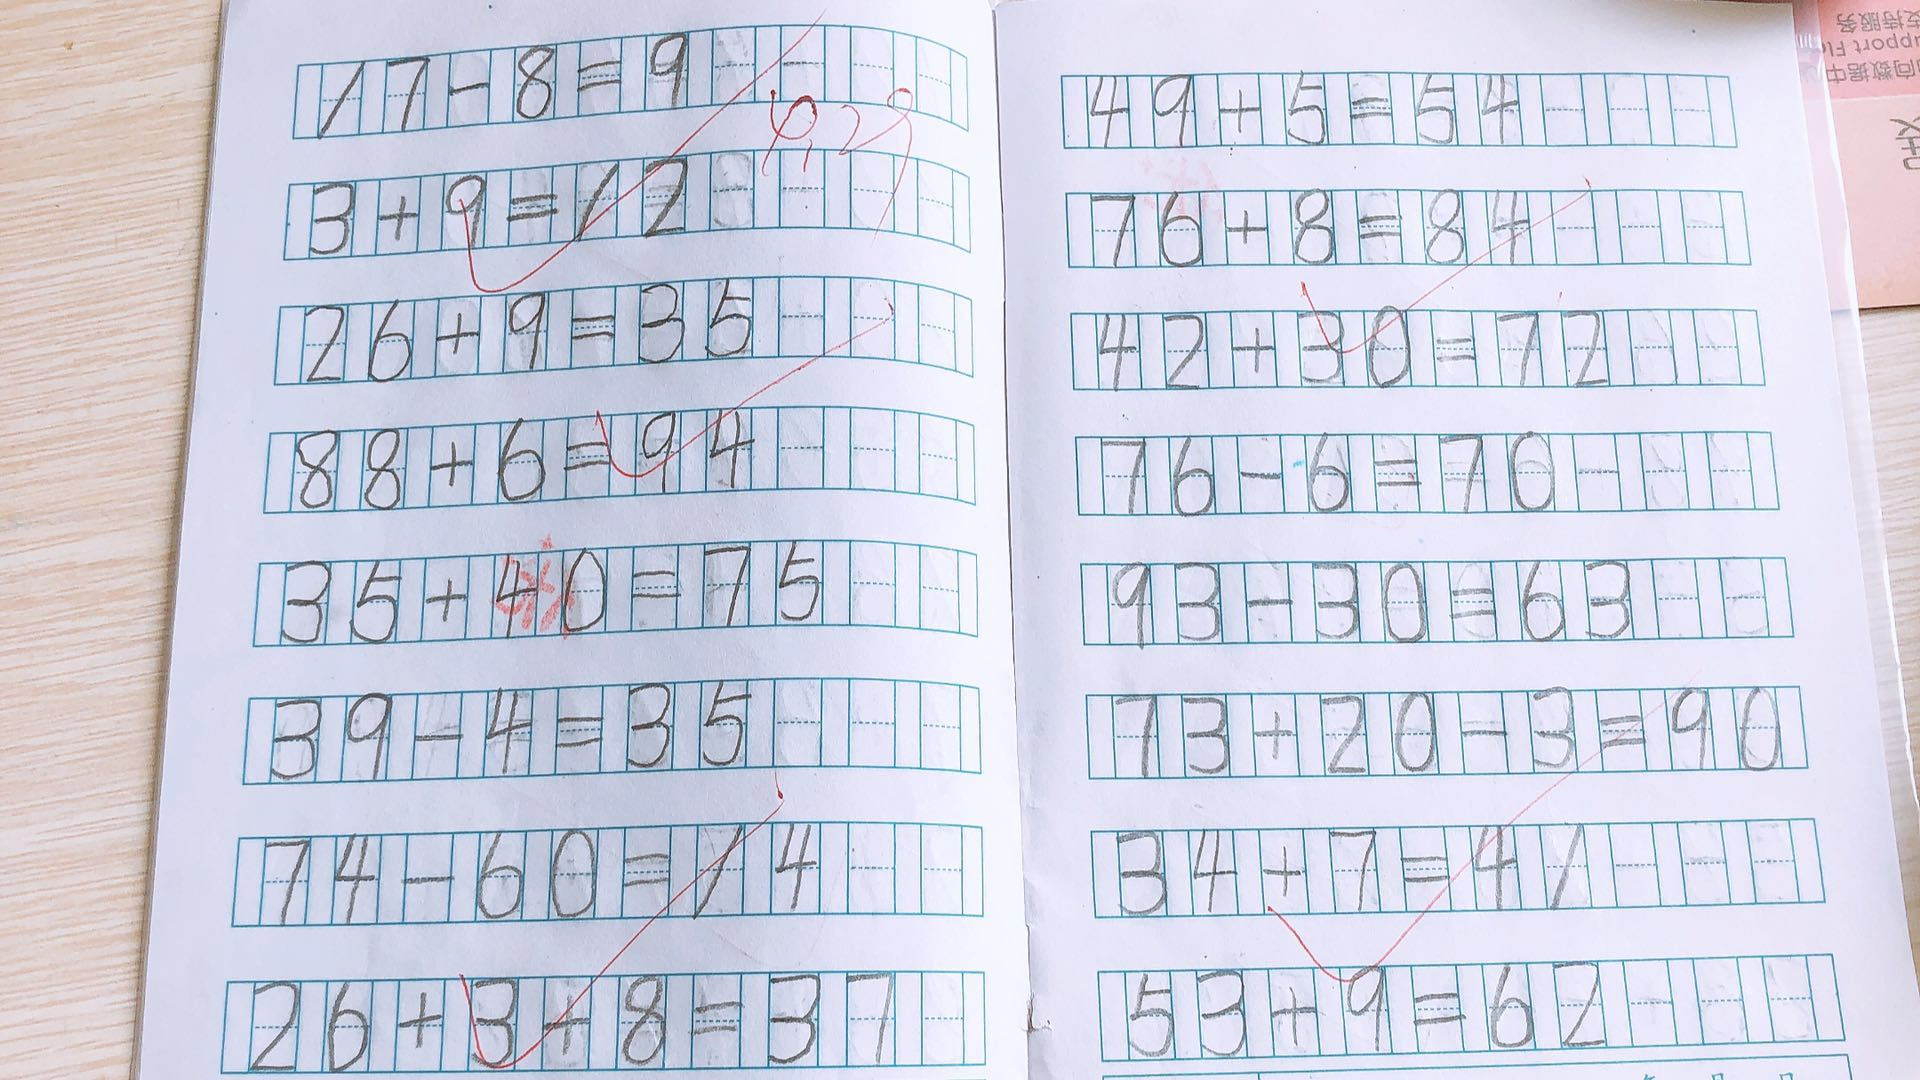 17-8=9
3+9=12
26+9=35
88+6=94
35+40=75
39-4=35
74-60=14
26+3+8=37
49+5=54
76+8=84
42+30=72
76-6=70
93-30=63
73+20-3=90
34+7=41
53+9=62
支持服务
向数据中